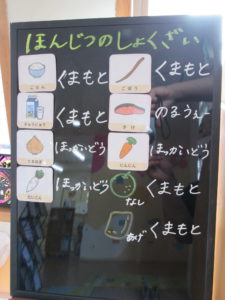 ほんじつのしょくざい
ごはん くまもと
ごぼう くまもと
ぎゅうにゅう くまもと
さけ のるうぇー
たまねぎ ほっかいどう
にんじん ほっかいどう
だいこん ほっかいどう
なし くまもと
あげ くまもと